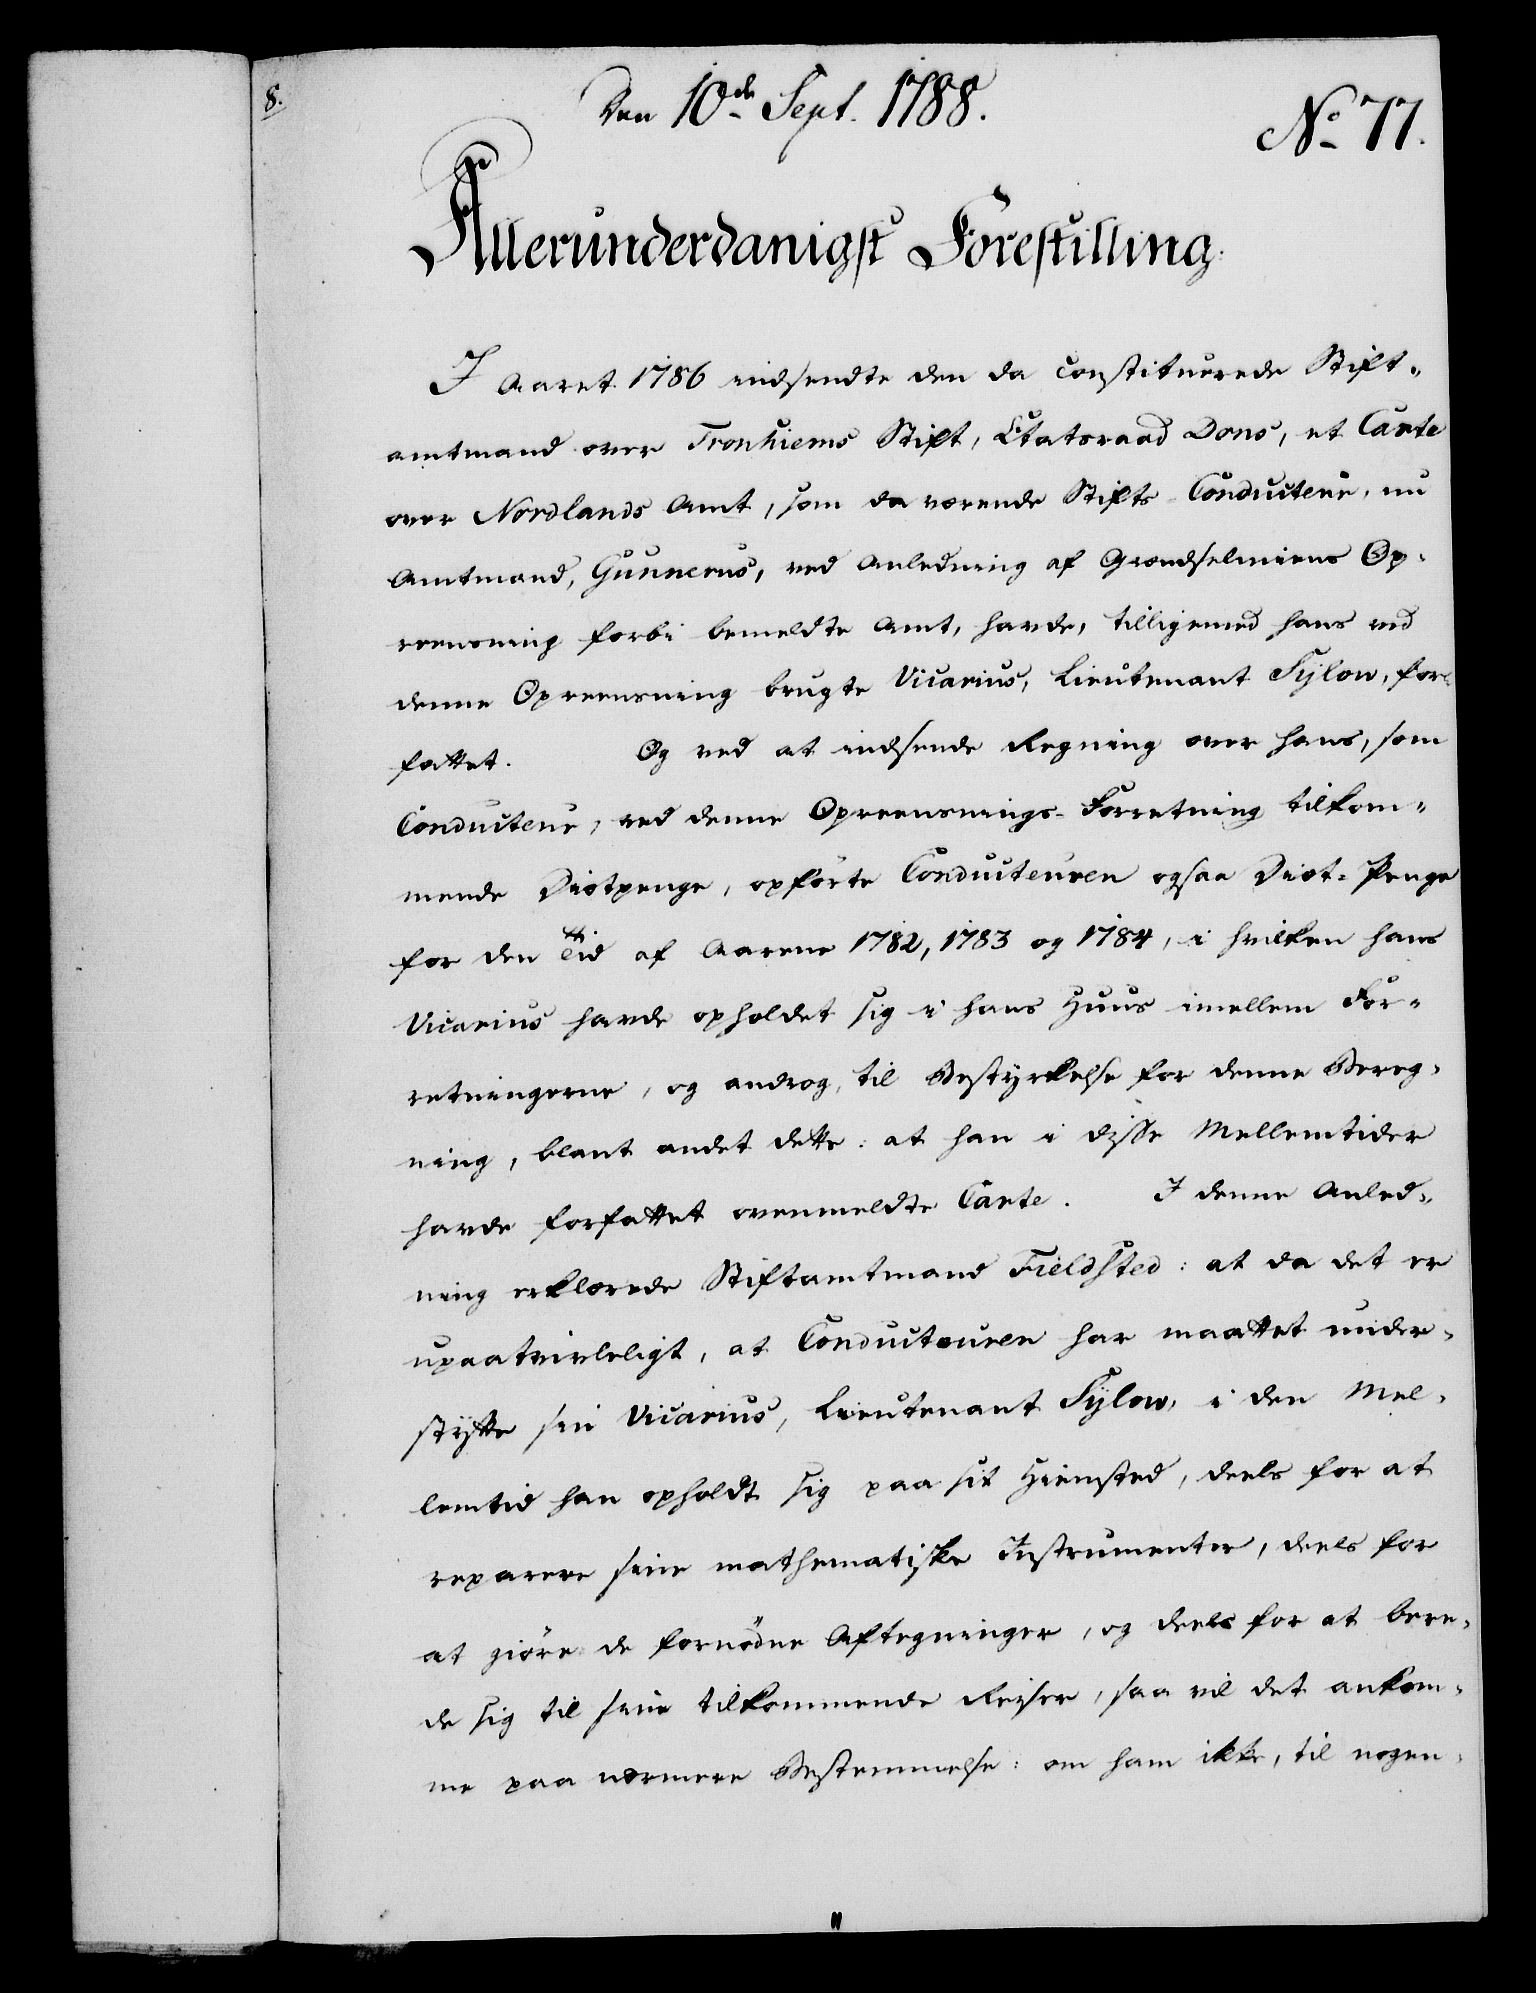 8.
Den 10de Sept. 1788.
No 77.
Allerunderdanigst Forestilling.
I Aaret 1786 indsendte den da constituerede Stift-
amtmand over Tronhiems Stift, Etatsraad Dons, et Carte
over Nordlands Amt, som da værende Stifts-Conducteur, nu
Amtmand, Gunnerus, ved Anledning af Grændselinens Op-
reensning forbi bemeldte Amt, havde, tilligemed hans ved
denne Opreensning brugte Vicarius, Lieutenant Sylow, for-
fattet. Og ved at indsende Regning over hans, som
Conducteur, ved denne Opreensnings-Forretning tilkom-
mende Diætpenge, opførte Conducteuren ogsaa Diæt-Penge
for den Tid af Aarene 1782, 1783 og 1784, i hvilken hans
Vicarius havde opholdet sig i hans Huus imellem For-
retningerne, og androg, til Bestyrkelse for denne Bereg-
ning, blant andet dette: at han i disse Mellemtider
havde forfattet ovenmeldte Carte. I denne Anled-
ning erklærede Stiftamtmand Fieldsted: at da det er
upaatvivleligt, at Conducteuren har maattet under-
støtte sin Vicarius, Lieutenant Sylow, i den Mel-
lemtid han opholdt sig paa sit Hiemsted, deels for at
reparere sine mathematiske Instrumenter, deels for
at giøre de fornødne Aftegninger, og deels for at bere-
de sig til sine tilkommende Reiser, saa vil det ankom-
me paa nærmere Bestemmelse: om ham ikke, til nogen